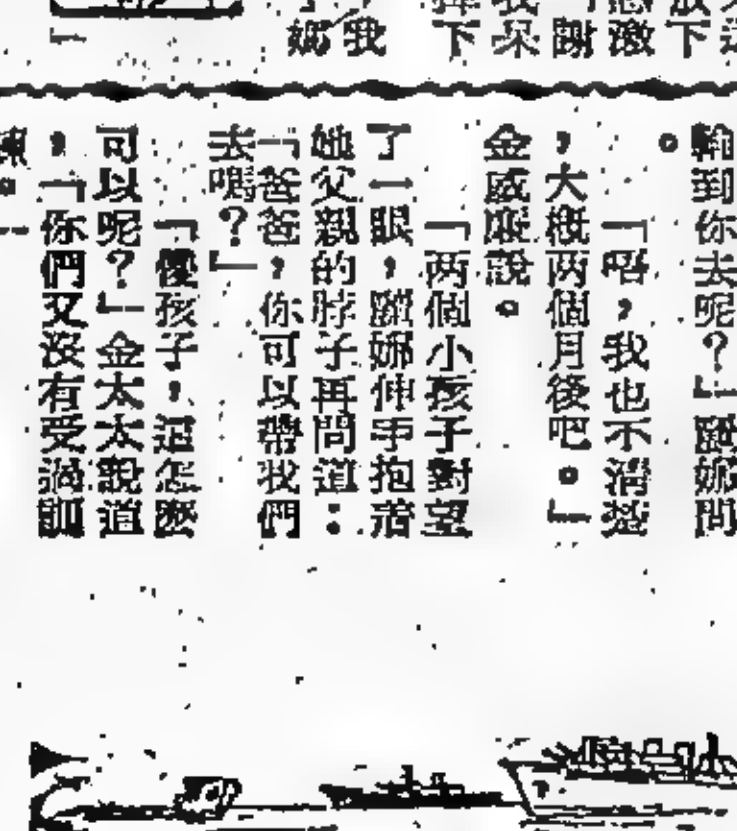 激
謝
我呆
下
我
媽
輪到你去呢？」麗娜問
。
「唔，我也不清楚
，大概兩個月後吧。」
金威廉說。
「兩個小孩子對望
了一眼，麗娜伸手抱着
她父親的脖子再問道：
「爸爸，你可以帶我們
去嗎？」
「傻孩子，這怎麼
可以呢？」金太太說道
，「你們又沒有受過訓
練。